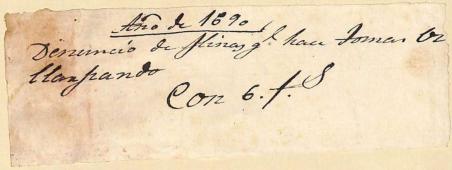 Año de 1690
Denuncio de Minas q.e hace Tomas Or
llanpando
Con 6. f.s